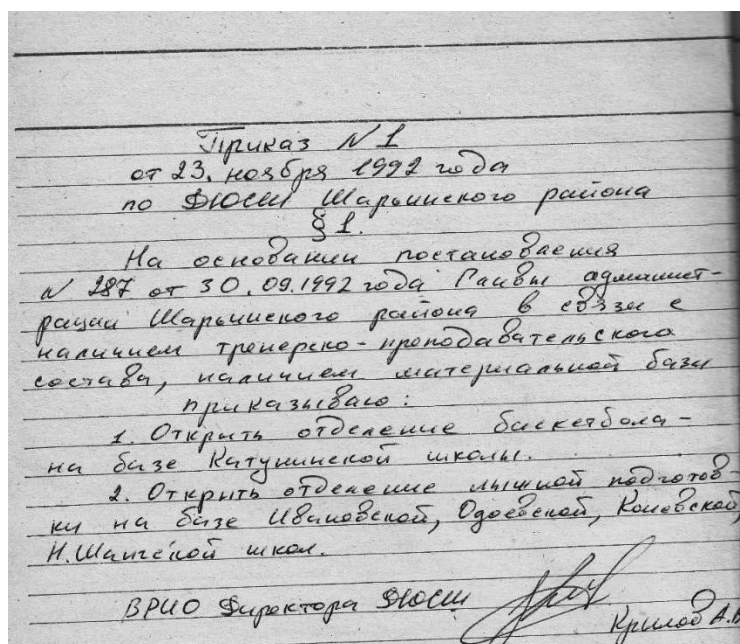 Приказ N 1
от 23. ноября 1992 года
по ДЮСШ Шарьинского района
§ 1.
На основании постановления
N 287 от 30.09.1992 года Главы админист-
рации Шарьинского района в связи с
наличием тренерско-преподавательского
состава, наличием материальной базы
приказываю:
1. Открыть отделение баскетбола -
на базе Катунинской школы.
2. Открыть отделение лыжной подготов-
ки на базе Ивановской, Одоевской, Коневской,
Н.Шангской школ.
ВРИО Директора ДЮСШ
Крылов А.В